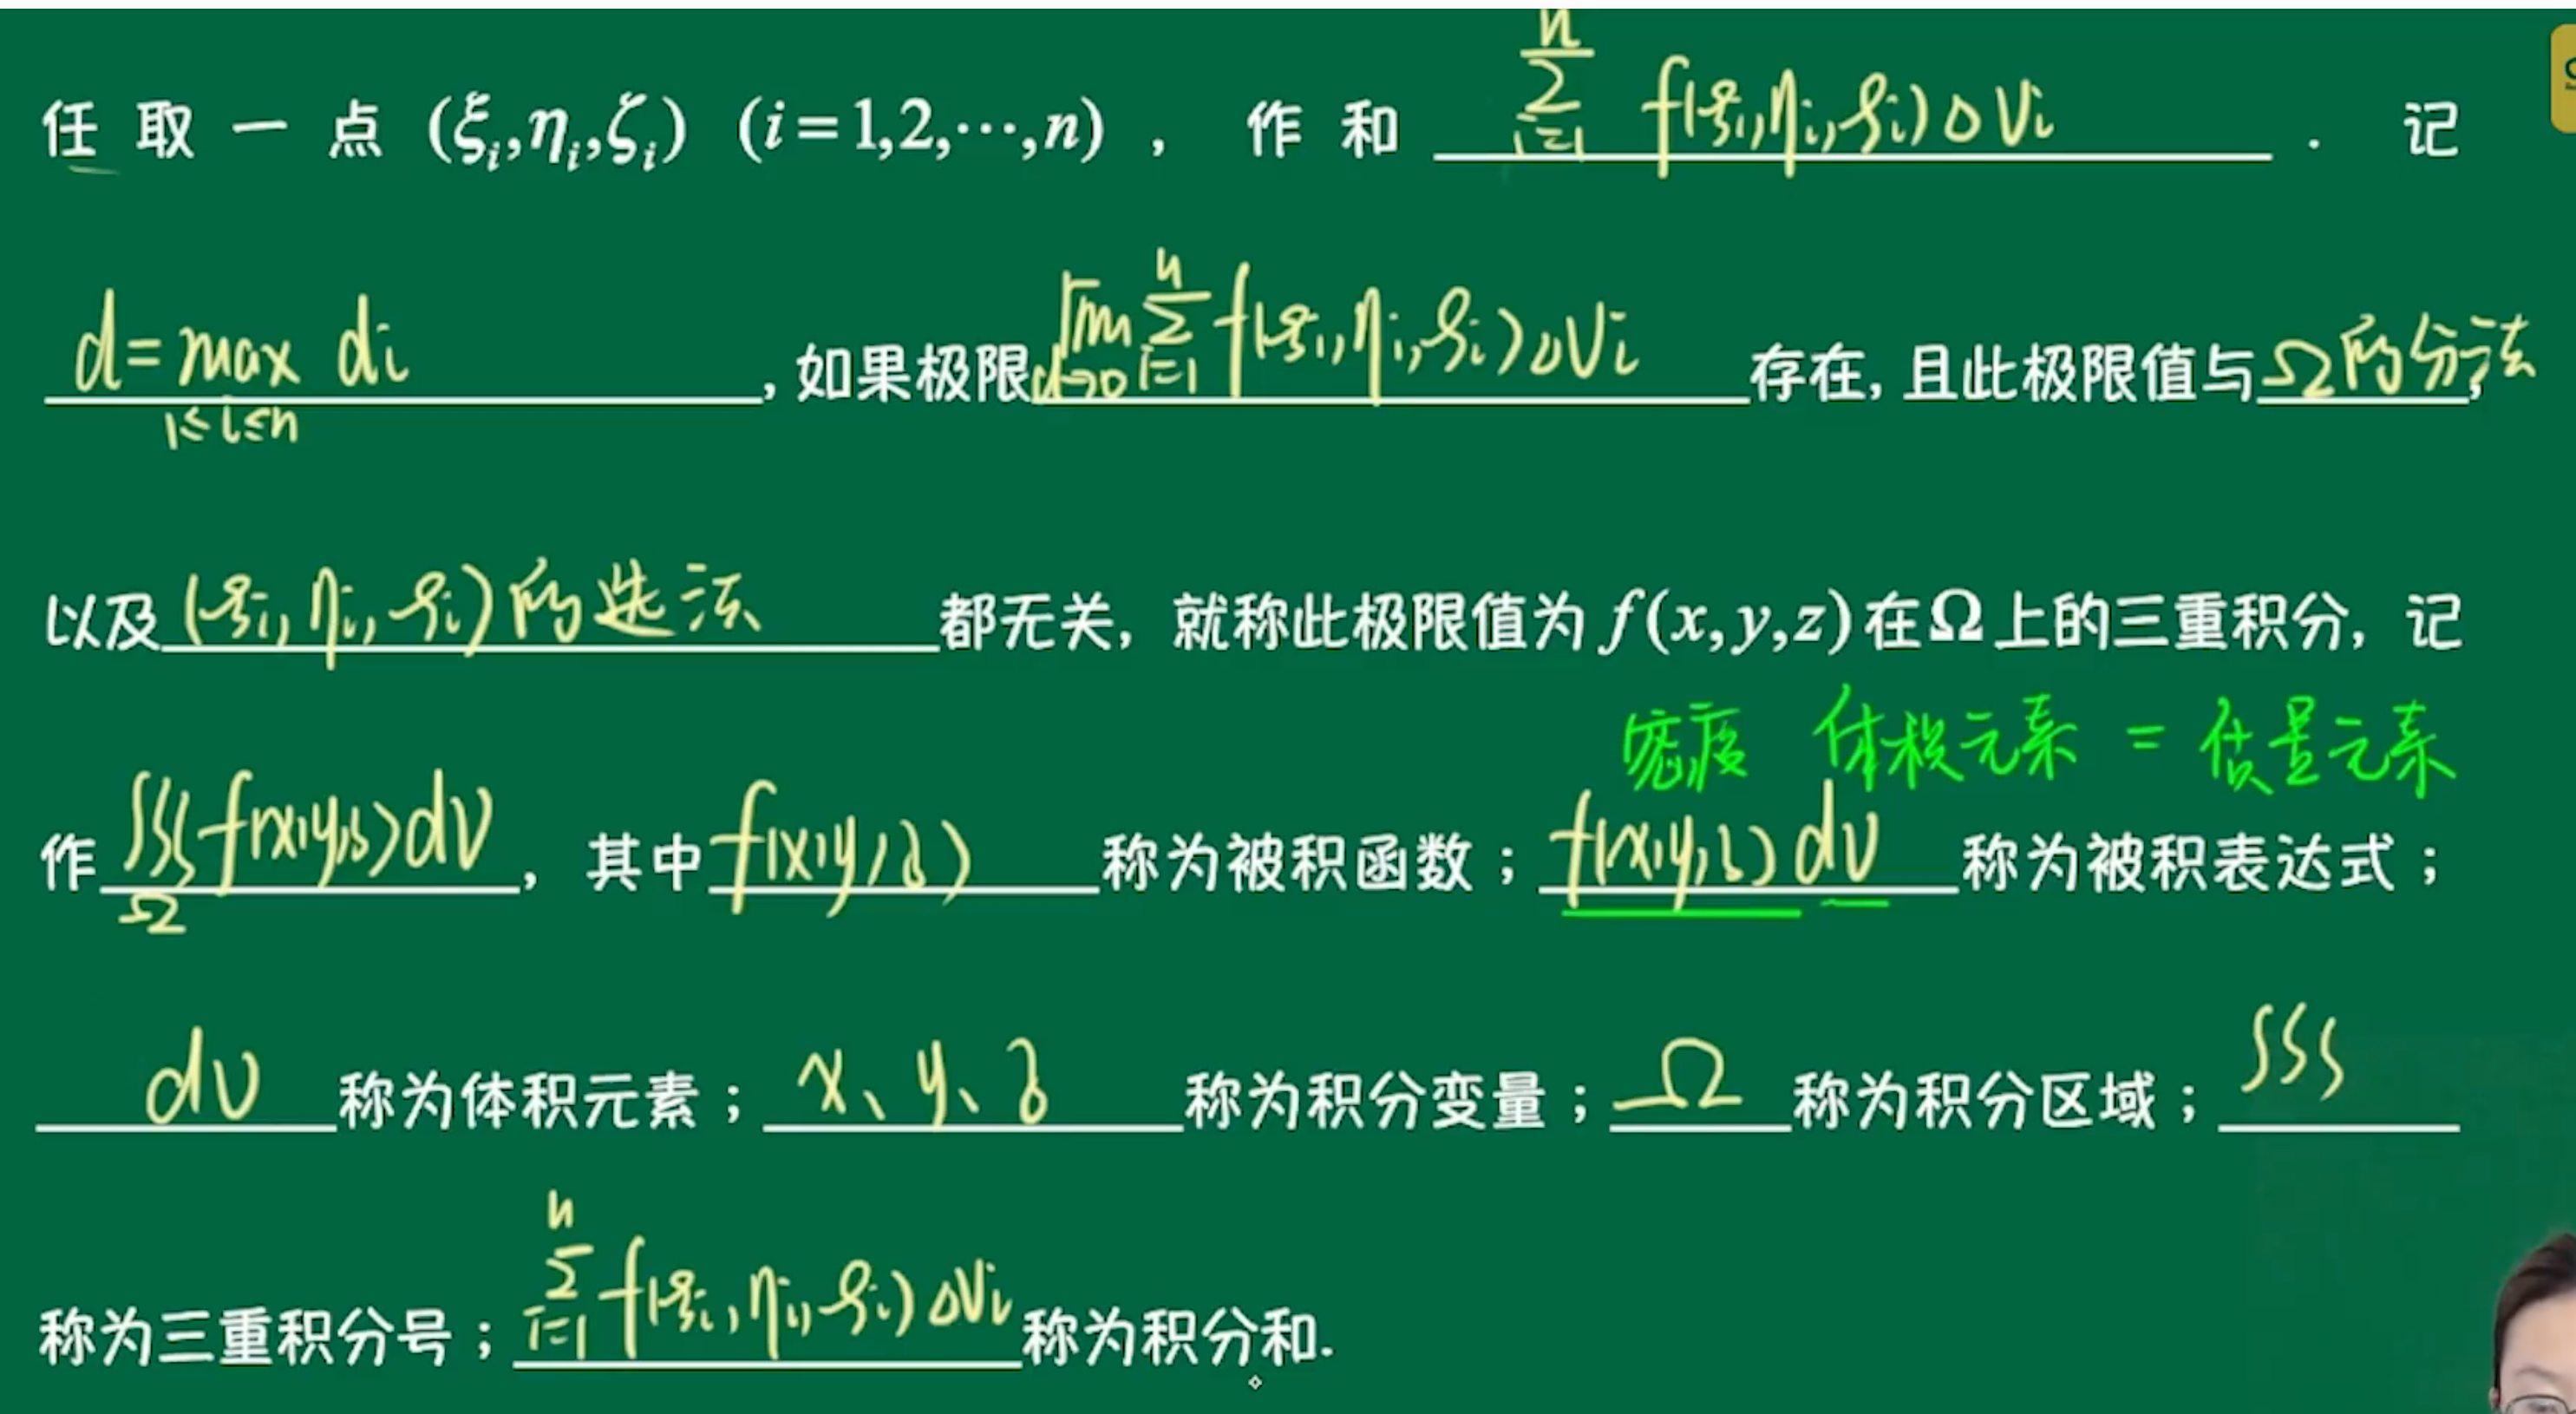 任取一点 (ξᵢ,ηᵢ,ζᵢ) (i=1,2,⋯,n), 作和 Σ(i=1→n) f(ξᵢ,ηᵢ,ζᵢ)ΔVᵢ . 记
d = max(1≤i≤n) dᵢ , 如果极限 lim(d→0) Σ(i=1→n) f(ξᵢ,ηᵢ,ζᵢ)ΔVᵢ 存在, 且此极限值与Ω的分法,
以及 (ξᵢ,ηᵢ,ζᵢ)的选法 都无关, 就称此极限值为 f(x,y,z) 在Ω上的三重积分, 记
密度 体积元素 = 质量元素
作 ∭(Ω) f(x,y,z)dv , 其中 f(x,y,z) 称为被积函数; f(x,y,z)dv 称为被积表达式;
dv 称为体积元素; x、y、z 称为积分变量; Ω 称为积分区域; ∭
称为三重积分号; Σ(i=1→n) f(ξᵢ,ηᵢ,ζᵢ)ΔVᵢ 称为积分和.